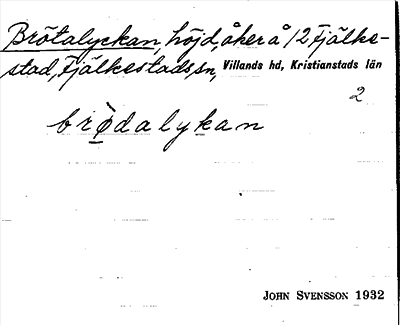 Brötalyckan, höjd, åker å 12 Fjälke-
stad, Fjälkestads sn, Villands hd, Kristianstads län
2
brø̀dalykan
JOHN SVENSSON 1932